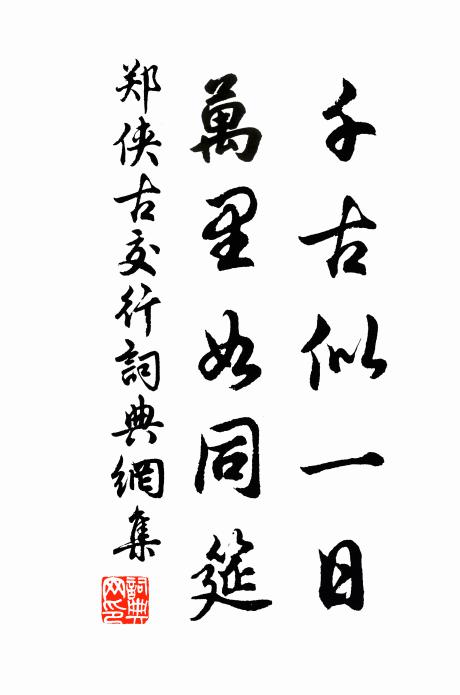 千古似一日
萬里如同筵
郑侠古交行詞典網集
詞典网印